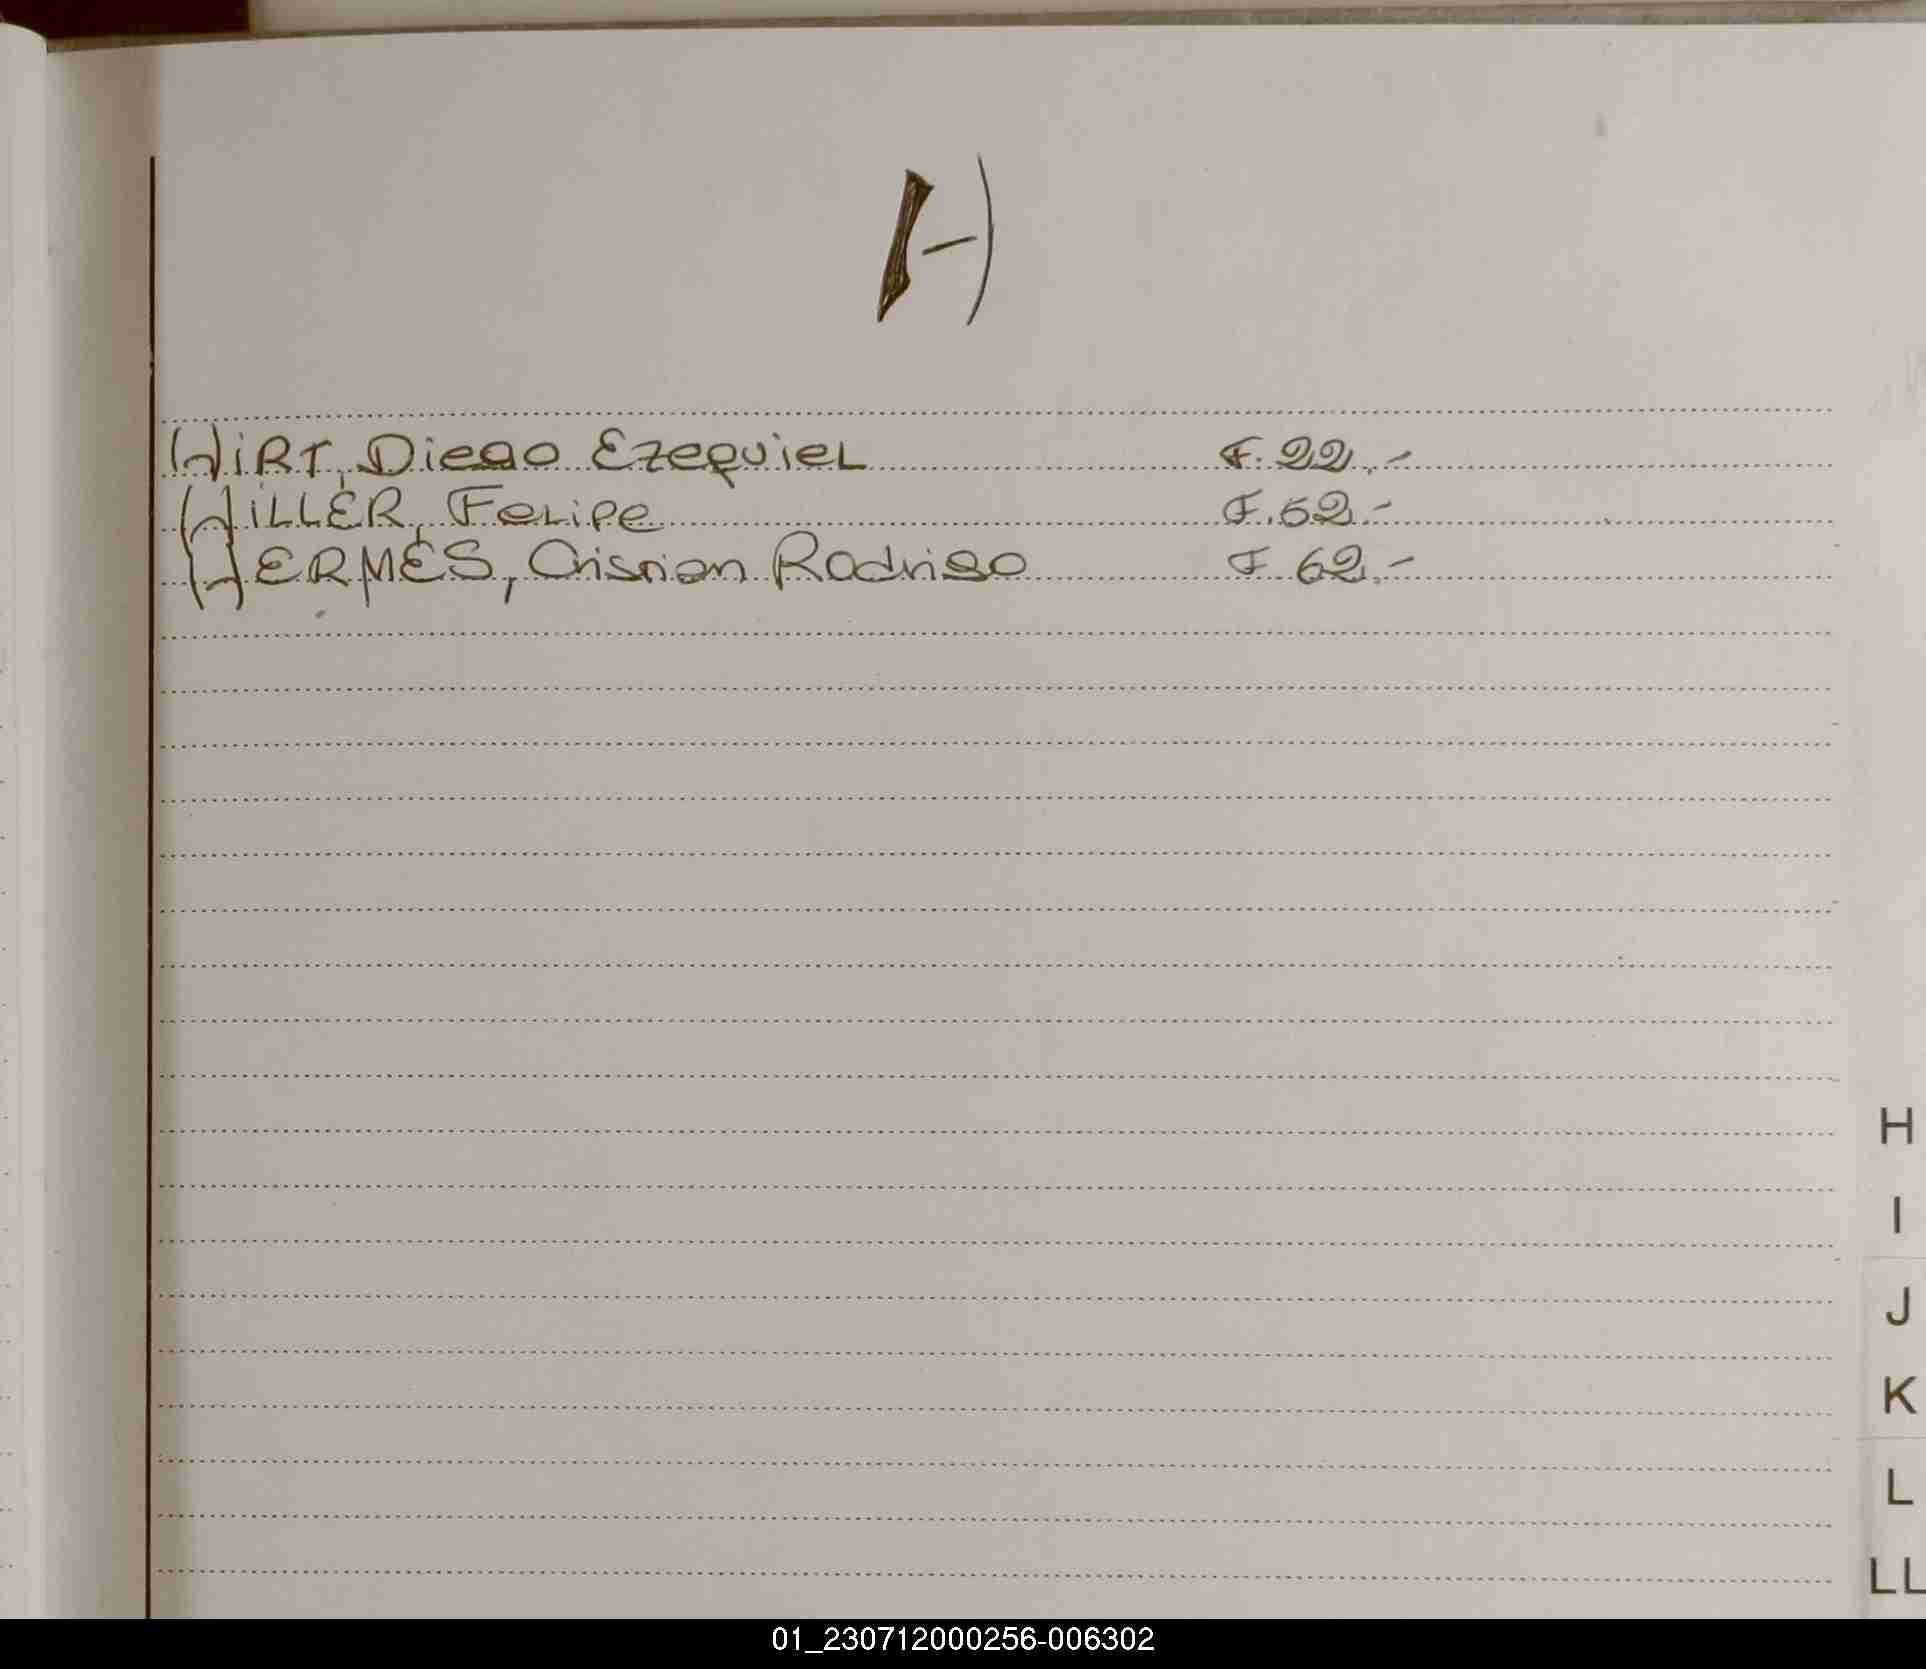 H
HiRT, Diego EzequieL F. 22.-
HiLLER, FeLipe F. 52.-
HERMES, Cristian Rodrigo F 62.-
H
I
J
K
L
LL
01_230712000256-006302